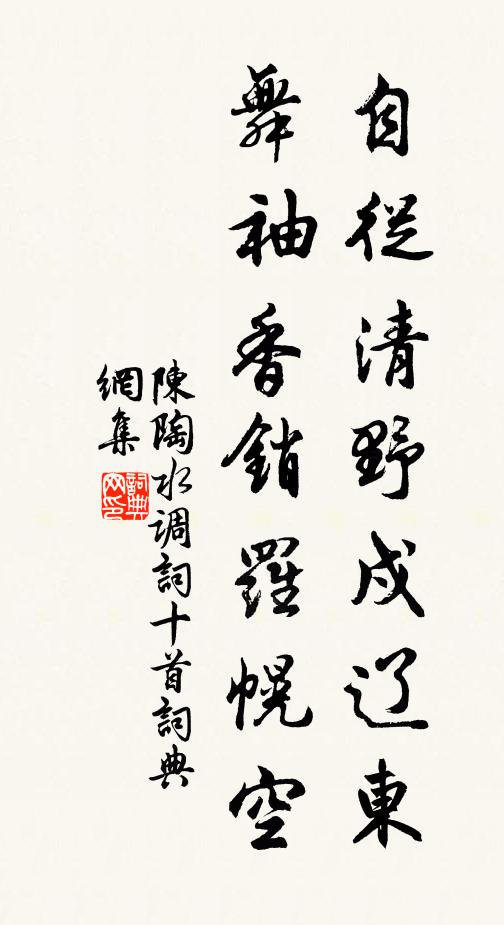 自從清野戍辽東
舞袖香銷羅幌空
陳陶水调詞十首詞典
網集
詞典网印